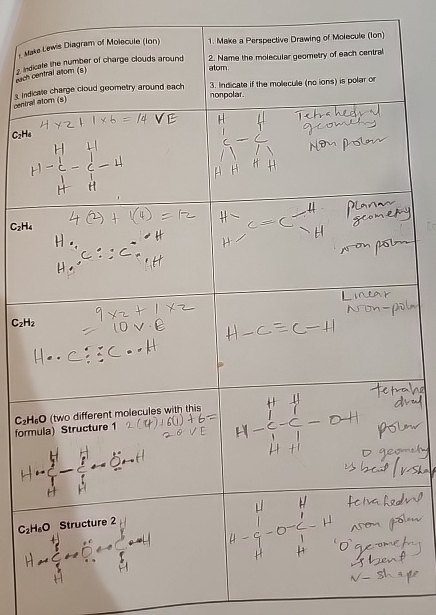 1. Make Lewis Diagram of Molecule (Ion)
2. Indicate the number of charge clouds around
each central atom (s)
3. Indicate charge cloud geometry around each
central atom (s)
1. Make a Perspective Drawing of Molecule (Ion)
2. Name the molecular geometry of each central
atom.
3. Indicate if the molecule (no ions) is polar or
nonpolar.
4x2+1x6=14 VE
C₂H₆
H H
H-C-C-H
H H
H H
C-C
H H H H
Tetrahedral
geometry
Non polar
4(2)+1(4)=12
C₂H₄
H H
C::C
H H
H H
C=C
H H
Planar
geometry
non polar
C₂H₂
= 10 V.E
H..C:::C..H
H-C≡C-H
Linear
Non-polar
C₂H₆O (two different molecules with this
formula) Structure 1
20 VE
H H
H C-C O H
H H
H H
H-C-C-OH
H H
tetrahe
dral
polar
O geometry
is bent / v-shap
C₂H₆O Structure 2
H H
H C O C H
H H
H H
H-C-O-C-H
H H
tetrahedral
non polar
'O' geometry
is bent
V-shape